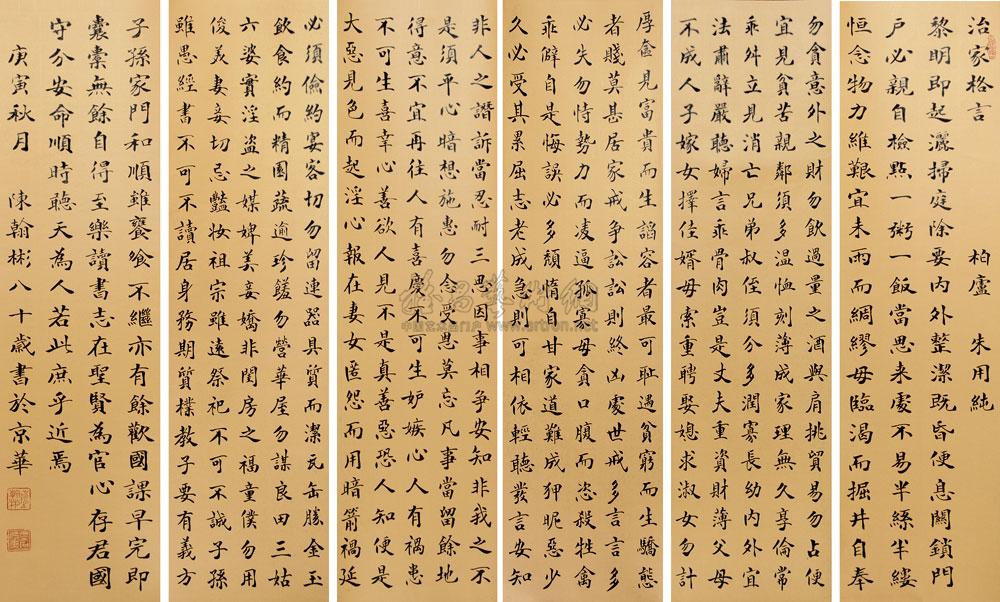 治家格言 柏廬 朱用純
黎明即起灑掃庭除要內外整潔既昏便息關鎖門
戶必親自檢點一粥一飯當思来處不易半絲半縷
恒念物力維艱宜未雨而綢繆毋臨渴而掘井自奉
勿貪意外之財勿飲過量之酒與肩挑貿易勿占便
宜見貧苦親鄰須多溫恤刻薄成家理無久享倫常
乖舛立見消亡兄弟叔侄須分多潤寡長幼內外宜
法肅辭嚴聽婦言乖骨肉豈是丈夫重資財薄父母
不成人子嫁女擇佳婿毋索重聘娶媳求淑女勿計
厚奩見富貴而生諂容者最可恥遇貧窮而生驕態
者賤莫甚居家戒爭訟訟則終凶處世戒多言言多
必失勿恃勢力而凌逼孤寡毋貪口腹而恣殺牲禽
乖僻自是悔誤必多頹惰自甘家道難成狎昵惡少
久必受其累屈志老成急則可相依輕聽發言安知
非人之譖訴當忍耐三思因事相爭安知非我之不
是須平心暗想施惠勿念受恩莫忘凡事當留餘地
得意不宜再往人有喜慶不可生妒嫉心人有禍患
不可生喜幸心善欲人見不是真善惡恐人知便是
大惡見色而起淫心報在妻女匿怨而用暗箭禍延
必須儉約宴客切勿留連器具質而潔瓦缶勝金玉
飲食約而精園蔬逾珍饈勿營華屋勿謀良田三姑
六婆實淫盜之媒婢美妾嬌非閨房之福童僕勿用
俊美妻妾切忌豔妝祖宗雖遠祭祀不可不誠子孫
雖愚經書不可不讀居身務期質樸教子要有義方
子孫家門和順雖饔飧不繼亦有餘歡國課早完即
囊橐無餘自得至樂讀書志在聖賢為官心存君國
守分安命順時聽天為人若此庶乎近焉
庚寅秋月 陳翰彬八十歲書於京華